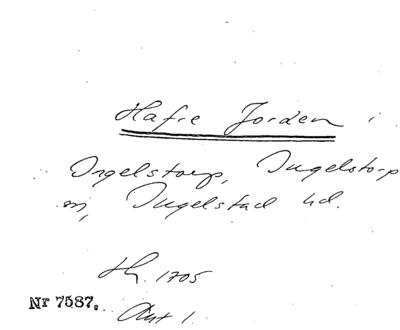 Hafre Jorden i
Ingelstorp, Ingelstorp
sn, Ingelstad hd.
Th. 1705
Akt 1.
Nr 7587.